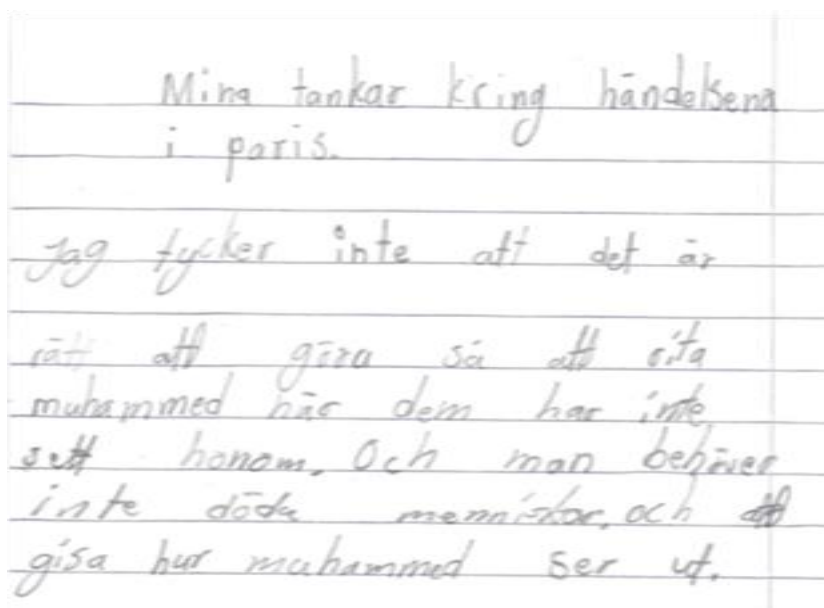 Mina tankar kring händelsena
i paris.
Jag tycker inte att det är
rätt att göra så att rita
muhammed när dem har inte
sett honom. Och man behöver
inte döda menniskor. och att
gisa hur muhammed ser ut.